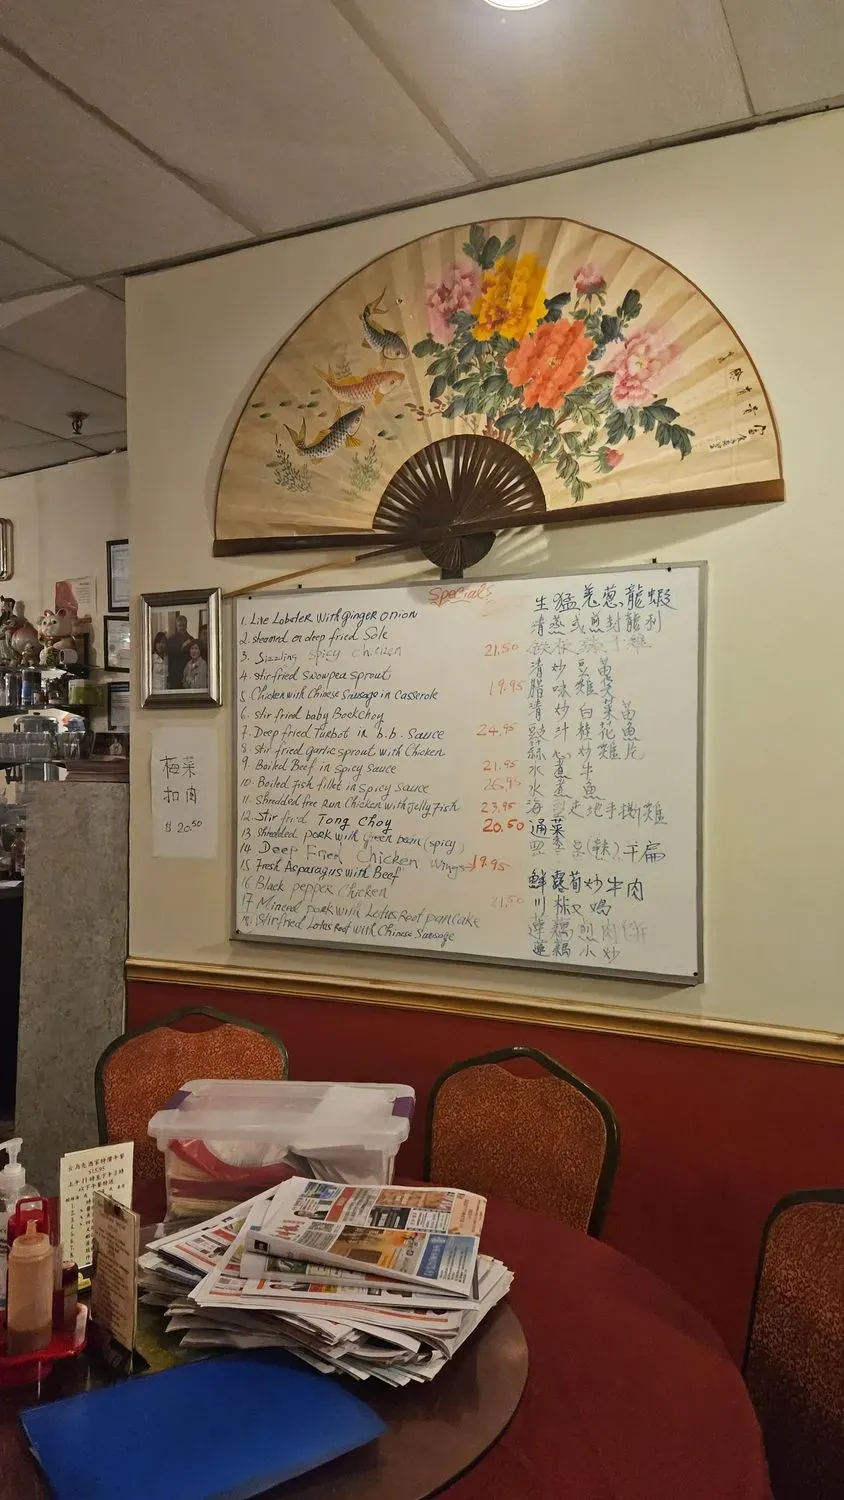 Specials
1. Live Lobster with ginger onion 生猛羌蔥龍蝦
2. steamed or deep fried Sole 清蒸或煎封龍利
3. Sizzling spicy chicken 21.50 鐵板辣子雞
4. stirfried snowpea sprout 清炒豆苗
5. Chicken with Chinese Sausage in Casserole 19.95 腊味雞煲
6. stir fried baby Bockchoy 清炒白菜苗
7. Deep fried Turbot in b.b. Sauce 24.95 豉汁桂花魚
8. stir fried garlic sprout with Chicken 蒜心炒雞片
9. Boiled Beef in spicy sauce 21.95 水煮牛
10. Boiled Fish fillet in spicy sauce 26.95 水煮魚
11. Shredded free Run Chicken with Jelly Fish 23.95 海蜇走地手撕雞
12. Stir fried Tong Choy 20.50 通菜
13 Shredded pork with green bean (spicy) 豆(辣)干扁
14 Deep Fried Chicken Wings 19.95
15 Fresh Asparagus with Beef 鮮露荀炒牛肉
16 Black pepper Chicken 川椒鸡
17 Minced pork with Lotus Root pancake 21.50 蓮藕煎肉餅
18. Stirfried Lotus Root with Chinese Sausage 蓮藕小炒
梅菜
扣肉
$ 20.50
$15.95
上午11時至下午3時
以下午餐時候